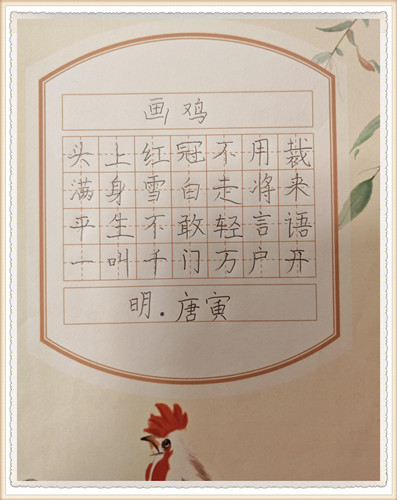 画鸡
头上红冠不用裁
满身雪白走将来
平生不敢轻言语
一叫千门万户开
明.唐寅